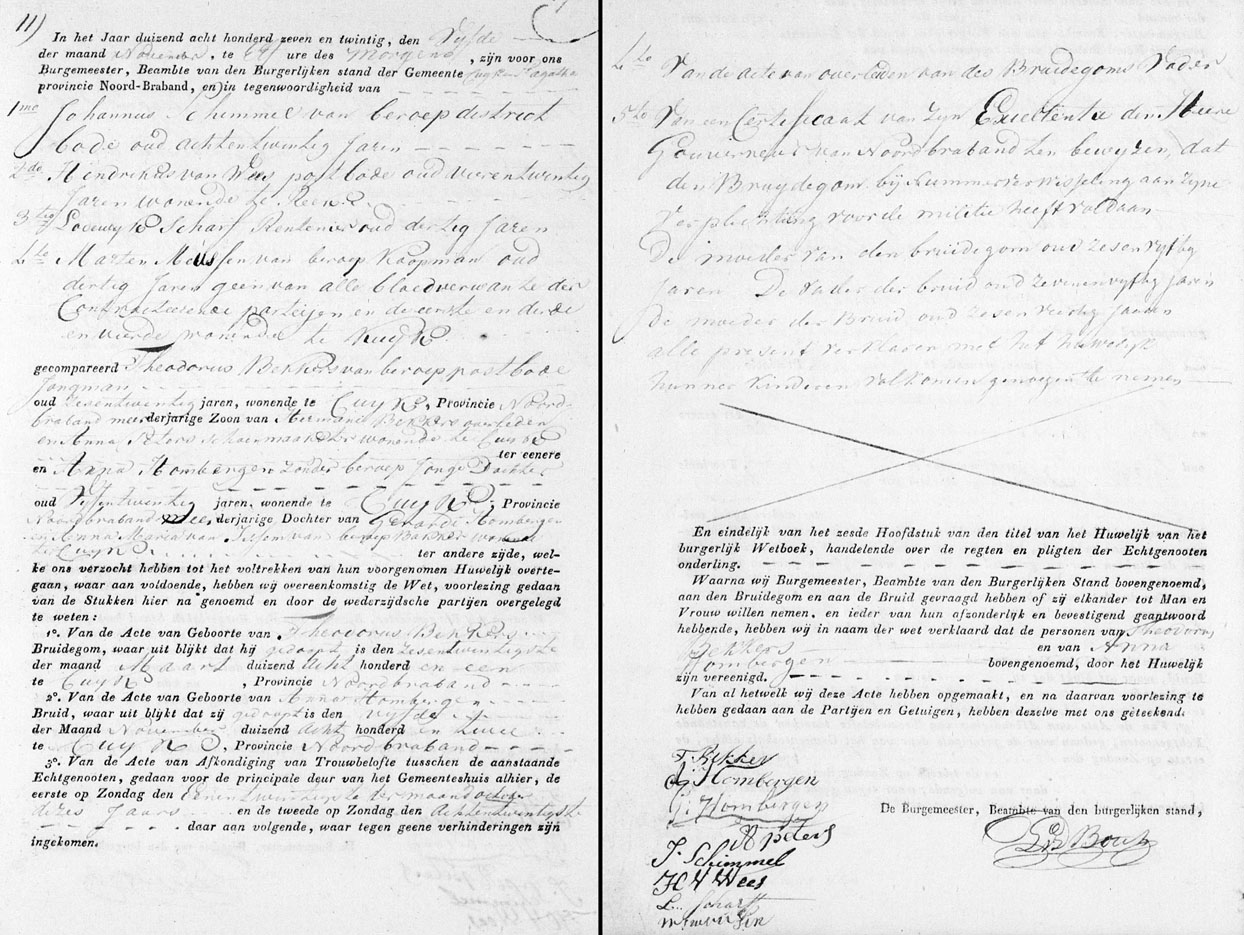 11)
In het Jaar duizend acht honderd zeven en twintig, den Vyfde
der maand November, te Elf ure des Morgens, zijn voor ons
Burgemeester, Beambte van den Burgerlijken stand der Gemeente Cuyk en St agatha
provincie Noord-Braband, en in tegenwoordigheid van
1mo Johannus Schimmel van beroep district
bode oud achtentwintig Jaren
2de Hendrikus van Wees postbode oud vierentwintig
Jaren wonende te Reek
3tig Lodewyk Scharf Rentenier oud dertig Jaren
4te Marten van beroep Koopman oud
dertig Jaren geen van alle bloedverwante der
Contracteerende parteijen en de eerste en derde
en vierde wonende te Kuyk
gecompareerd Theodorus Bekkers van beroep postbode
Jongman
oud Zesentwintig jaren, wonende te Cuyk, Provincie Noord-
braband meerderjarige Zoon van Hermanus Bekkers overleden
en Anna Peters wonende te Cuyk
ter eenere
en Anna Hombergen Zonder beroep Jonge Dochter
oud Vyfentwintig jaren, wonende te Cuyk, Provincie
Noordbraband meerderjarige Dochter van Gerardi Hombergen
en Anna Maria van van beroep Bakker wonend
te Cuyk ter andere zijde, wel-
ke ons verzocht hebben tot het voltrekken van hun voorgenomen Huwelijk overte-
gaan, waar aan voldoende, hebben wij overeenkomstig de Wet, voorlezing gedaan
van de Stukken hier na genoemd en door de wederzijdsche partijen overgelegd
te weten:
1°. Van de Acte van Geboorte van Theodorus Bekkers
Bruidegom, waar uit blijkt dat hij gedoopt is den Zesentwintigste
der maand Maart duizend acht honderd en een
te Cuyk, Provincie Noordbraband
2°. Van de Acte van Geboorte van Anna Hombergen
Bruid, waar uit blijkt dat zij gedoopt is den vyfde
der Maand November duizend acht honderd en twee
te Cuyk, Provincie Noordbraband
3°. Van de Acte van Afkondiging van Trouwbelofte tusschen de aanstaande
Echtgenooten, gedaan voor de principale deur van het Gemeenteshuis alhier, de
eerste op Zondag den Eenentwintigste der maand october
dezes Jaars en de tweede op Zondag den Achtentwintigste
daar aan volgende, waar tegen geene verhinderingen zijn
ingekomen.
4to Van de acte van overleden van des Bruidegoms Vader
5to Van een Certificaat van Zyn Excelentie den Heere
Gouverneur van Noordbraband ten bewyzen, dat
den Bruydegom bij Nummerverwisseling aan Zyne
Verplichting voor de militie heeft voldaan
De moeder van den bruidegom oud Zesenvyftig
Jaren De Vader der bruid oud Zevenenvyftig Jaren
De moeder der Bruid oud Zesenveertig Jaaren
alle present verklaren met het huwelijk
hunner kinderen volkomen genoegen te nemen
En eindelijk van het zesde Hoofdstuk van den titel van het Huwelijk van het
burgerlijk Wetboek, handelende over de regten en pligten der Echtgenooten
onderling.
Waarna wij Burgemeester, Beambte van den Burgerlijken Stand bovengenoemd,
aan den Bruidegom en aan de Bruid gevraagd hebben of zij elkander tot Man en
Vrouw willen nemen, en ieder van hun afzonderlijk en bevestigend geantwoord
hebbende, hebben wij in naam der wet verklaard dat de personen van Theodorus
Bekkers en van Anna
Hombergen bovengenoemd, door het Huwelijk
zijn vereenigd.
Van al hetwelk wij deze Acte hebben opgemaakt, en na daarvan voorlezing te
hebben gedaan aan de Partijen en Getuigen, hebben dezelve met ons geteekend.
T. Bekker
Hombergen
G: Hombergen
A peters
J. Schimmel
H V Wees
L. Scharff
De Burgemeester, Beambte van den burgerlijken stand,